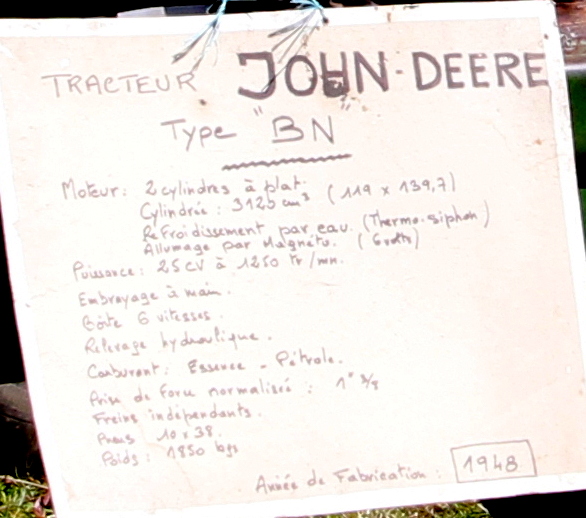 TRACTEUR JOHN-DEERE
Type "BN"
Moteur: 2 cylindres à plat.
Cylindrée: 3125 cm³ (119 x 139,7)
Refroidissement par eau. (Thermo-siphon)
Allumage par Magnéto. (6 volts)
Puissance: 25 CV à 1250 Tr/mn.
Embrayage à main.
Boîte 6 vitesses.
Relevage hydraulique.
Carburant: Essence - Pétrole.
Prise de force normalisée: 1" 3/8
Freins indépendants.
Pneus 10 x 38.
Poids: 1850 kgs
Année de Fabrication: 1948